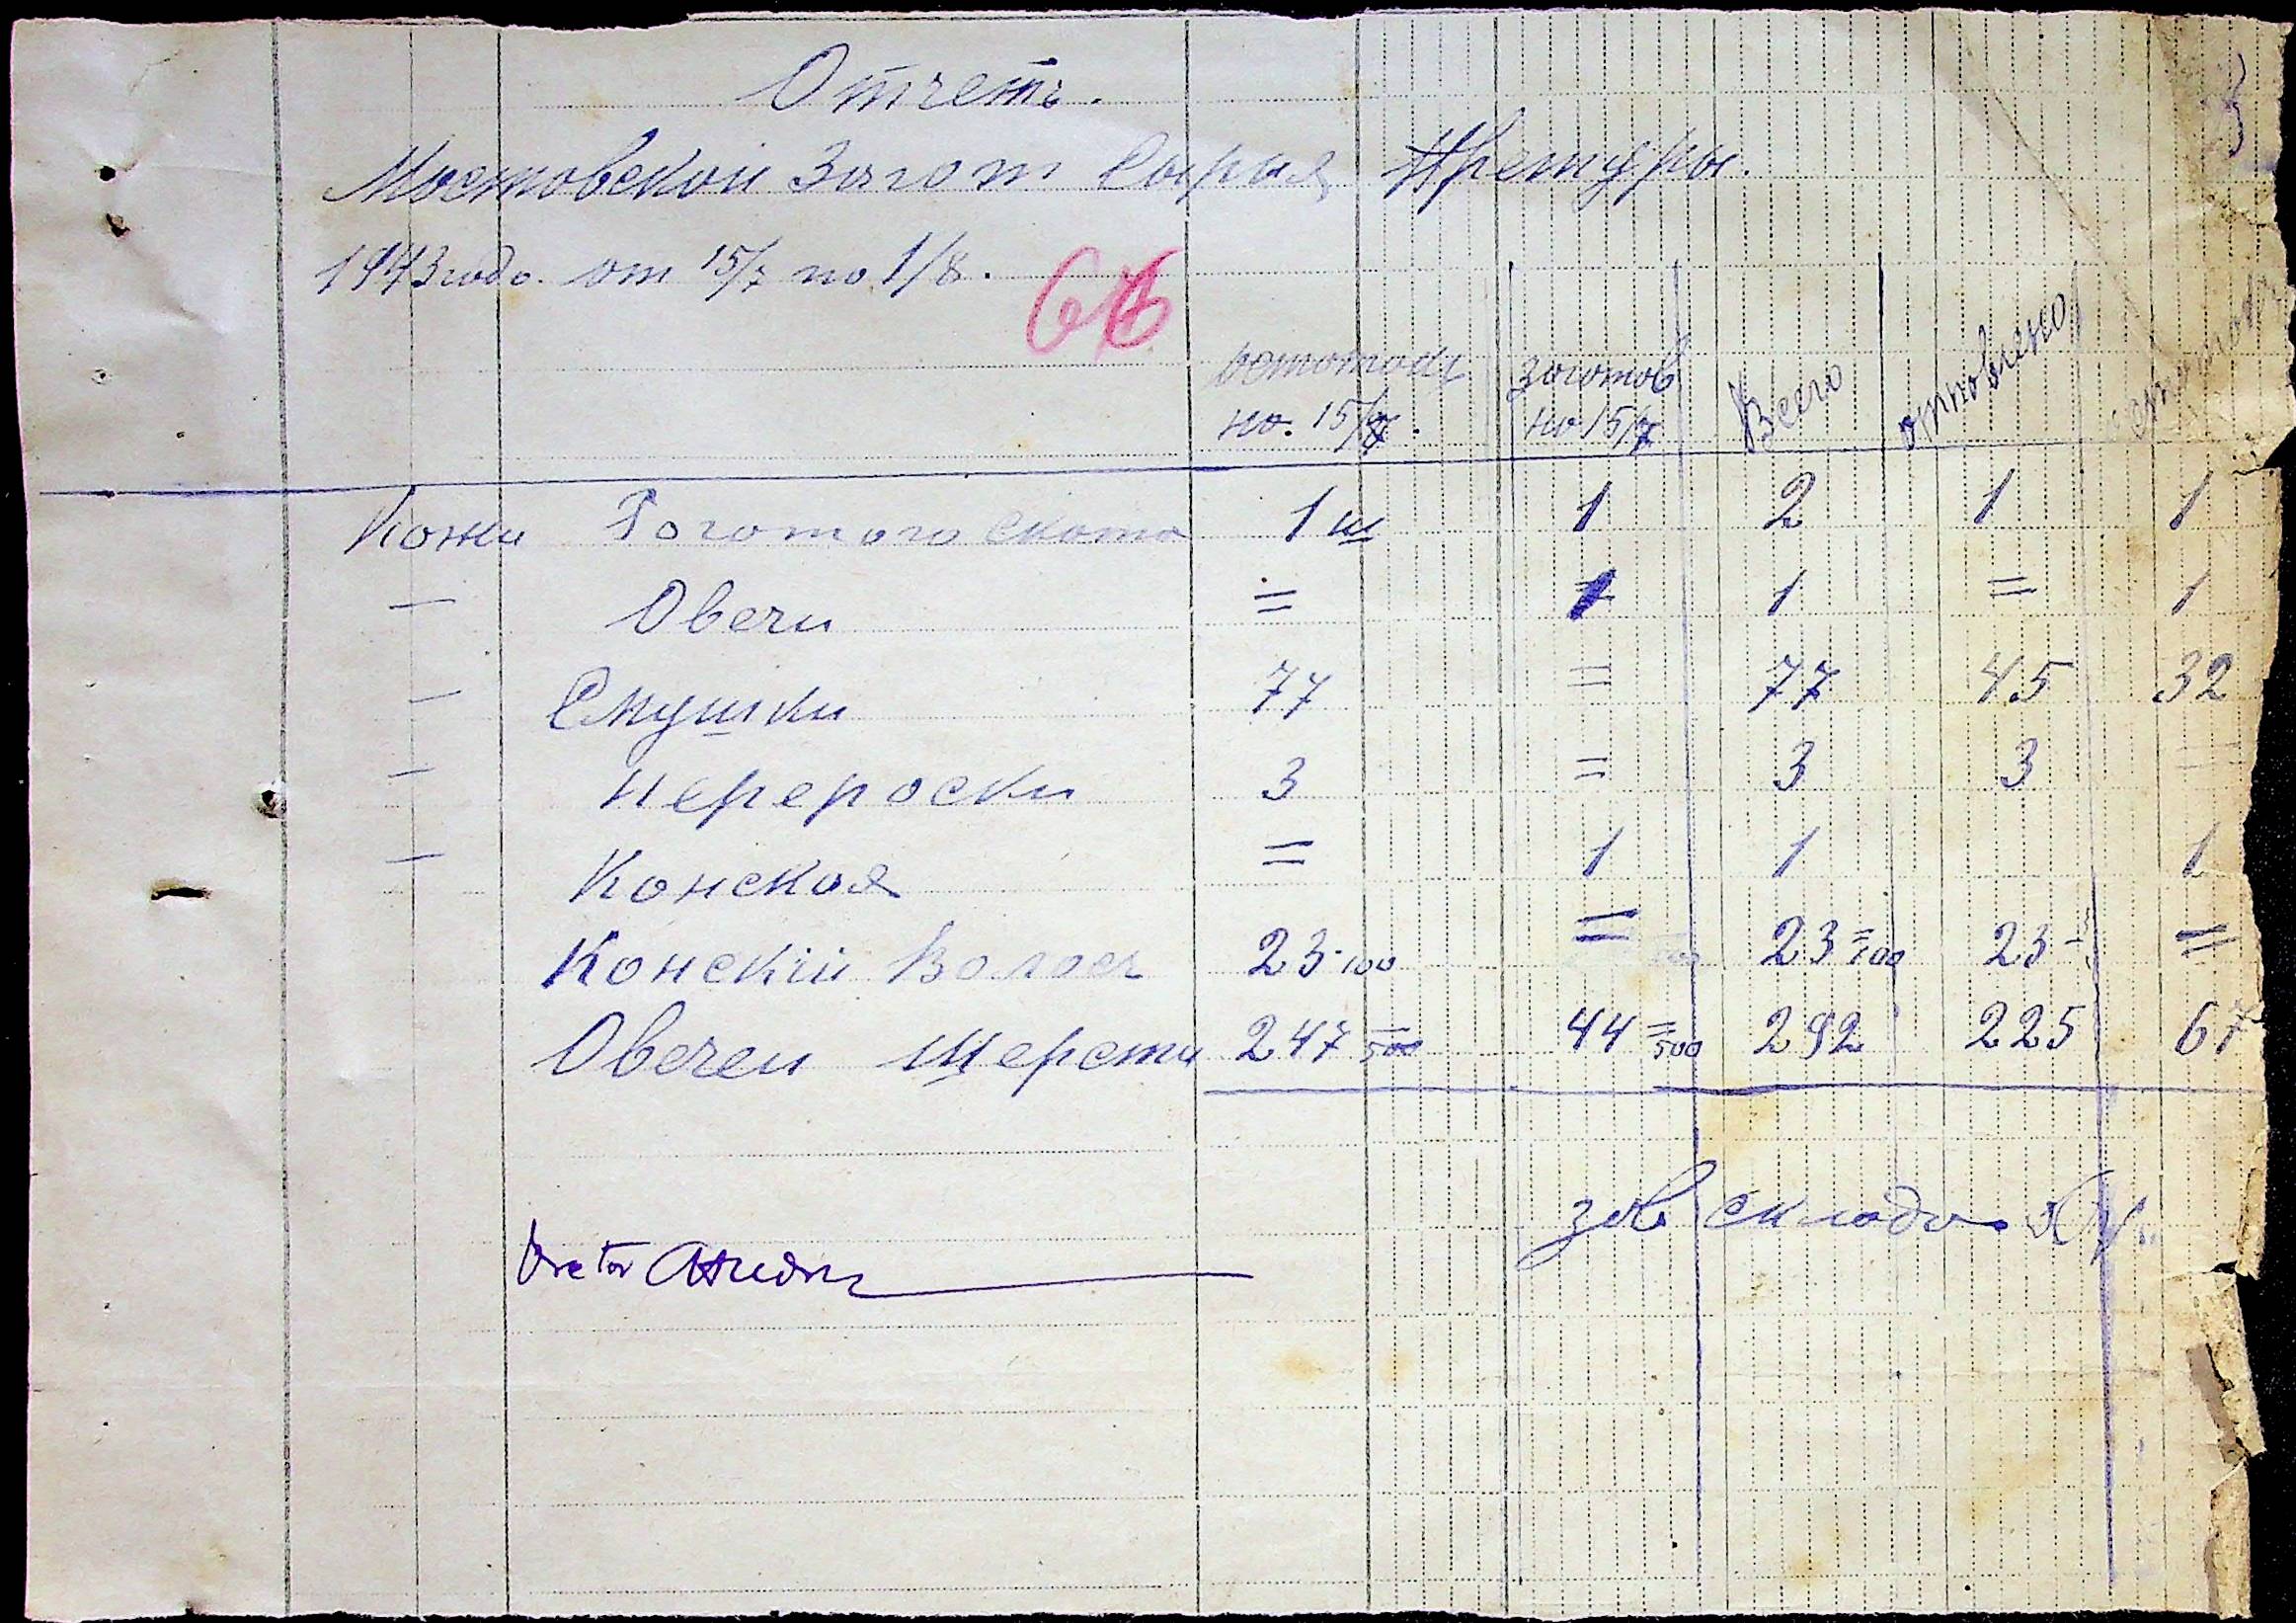 Отчетъ.
Мостовской Загот Сырья Претуры.
1943 года. от 15/7 по 1/8.
66
остотокъ заготов Всего отправлено остаток
на. 15/7. на 15/7
Кожи Рогатого скота 1 ш 1 2 1 1
— Овечи = 1 1 = 1
— Смушки 77 = 77 45 32
— перероски 3 = 3 3 =
— Конская = 1 1 1
Конскiй Волосъ 23-100 = 23=100 23- =
Овечеи шерсти 247=500 44=500 292 225 67
зав склада
Pretor